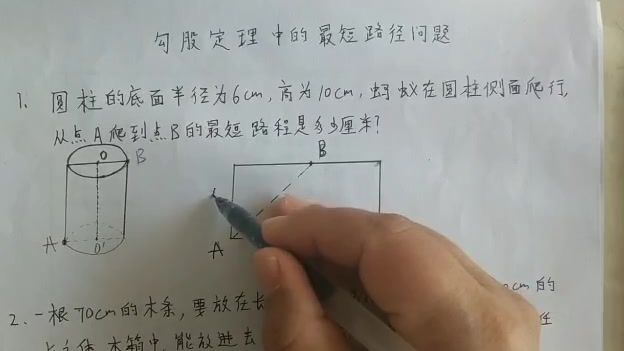 勾股定理中的最短路径问题
1. 圆柱的底面半径为6cm,高为10cm,蚂蚁在圆柱侧面爬行,
从点A爬到点B的最短路程是多少厘米?
O B
B
A O'
A
2. 一根70cm的木条,要放在长 cm的
木箱中,能放进去